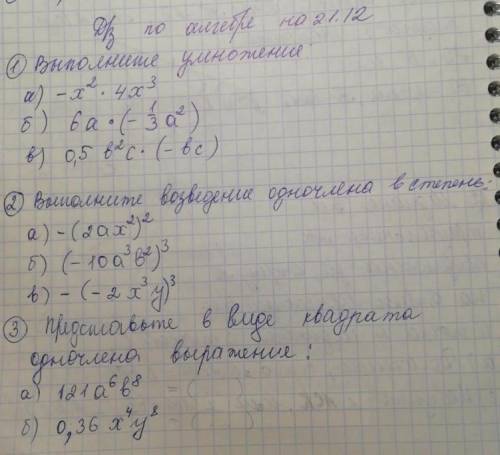 Д/з по алгебре на 21.12
① Выполните умножение
а) -x² · 4x³
б) 6a · (-1/3a²)
в) 0,5 b²c · (-bc)
② Выполните возведение одночлена в степень:
а) -(2ax²)²
б) (-10a³b²)³
в) -(-2x³y)³
③ Представьте в виде квадрата
одночлена выражение:
а) 121a⁶b⁸
б) 0,36 x⁴y⁸